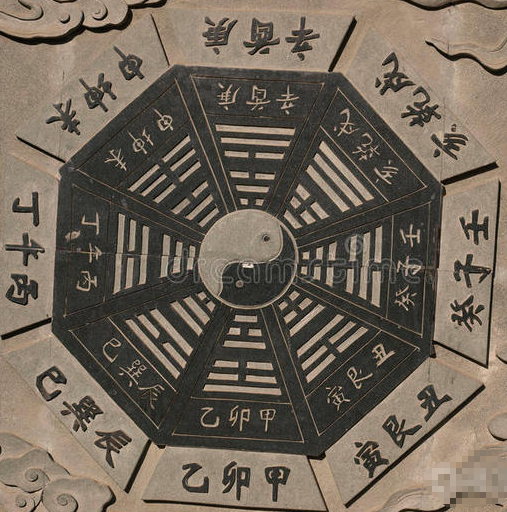 庚酉辛
戌乾亥
壬子癸
丑艮寅
甲卯乙
辰巽巳
丙午丁
未坤申
庚酉辛
戌乾亥
壬子癸
丑艮寅
甲卯乙
辰巽巳
丙午丁
未坤申
dreamstime